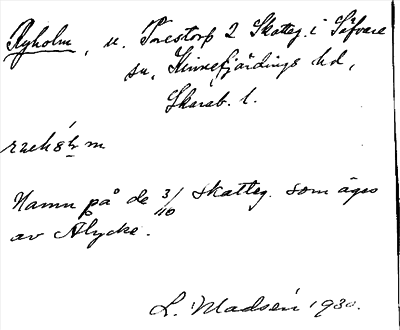 Ryholm, u. Torestorp 2 Skatteg. i Säfvare
sn, Kinnefjärdings hd,
Skarab. l.
Namn på de 3/10 skatteg. som äges
av Alycke.
L. Madsén 1930.